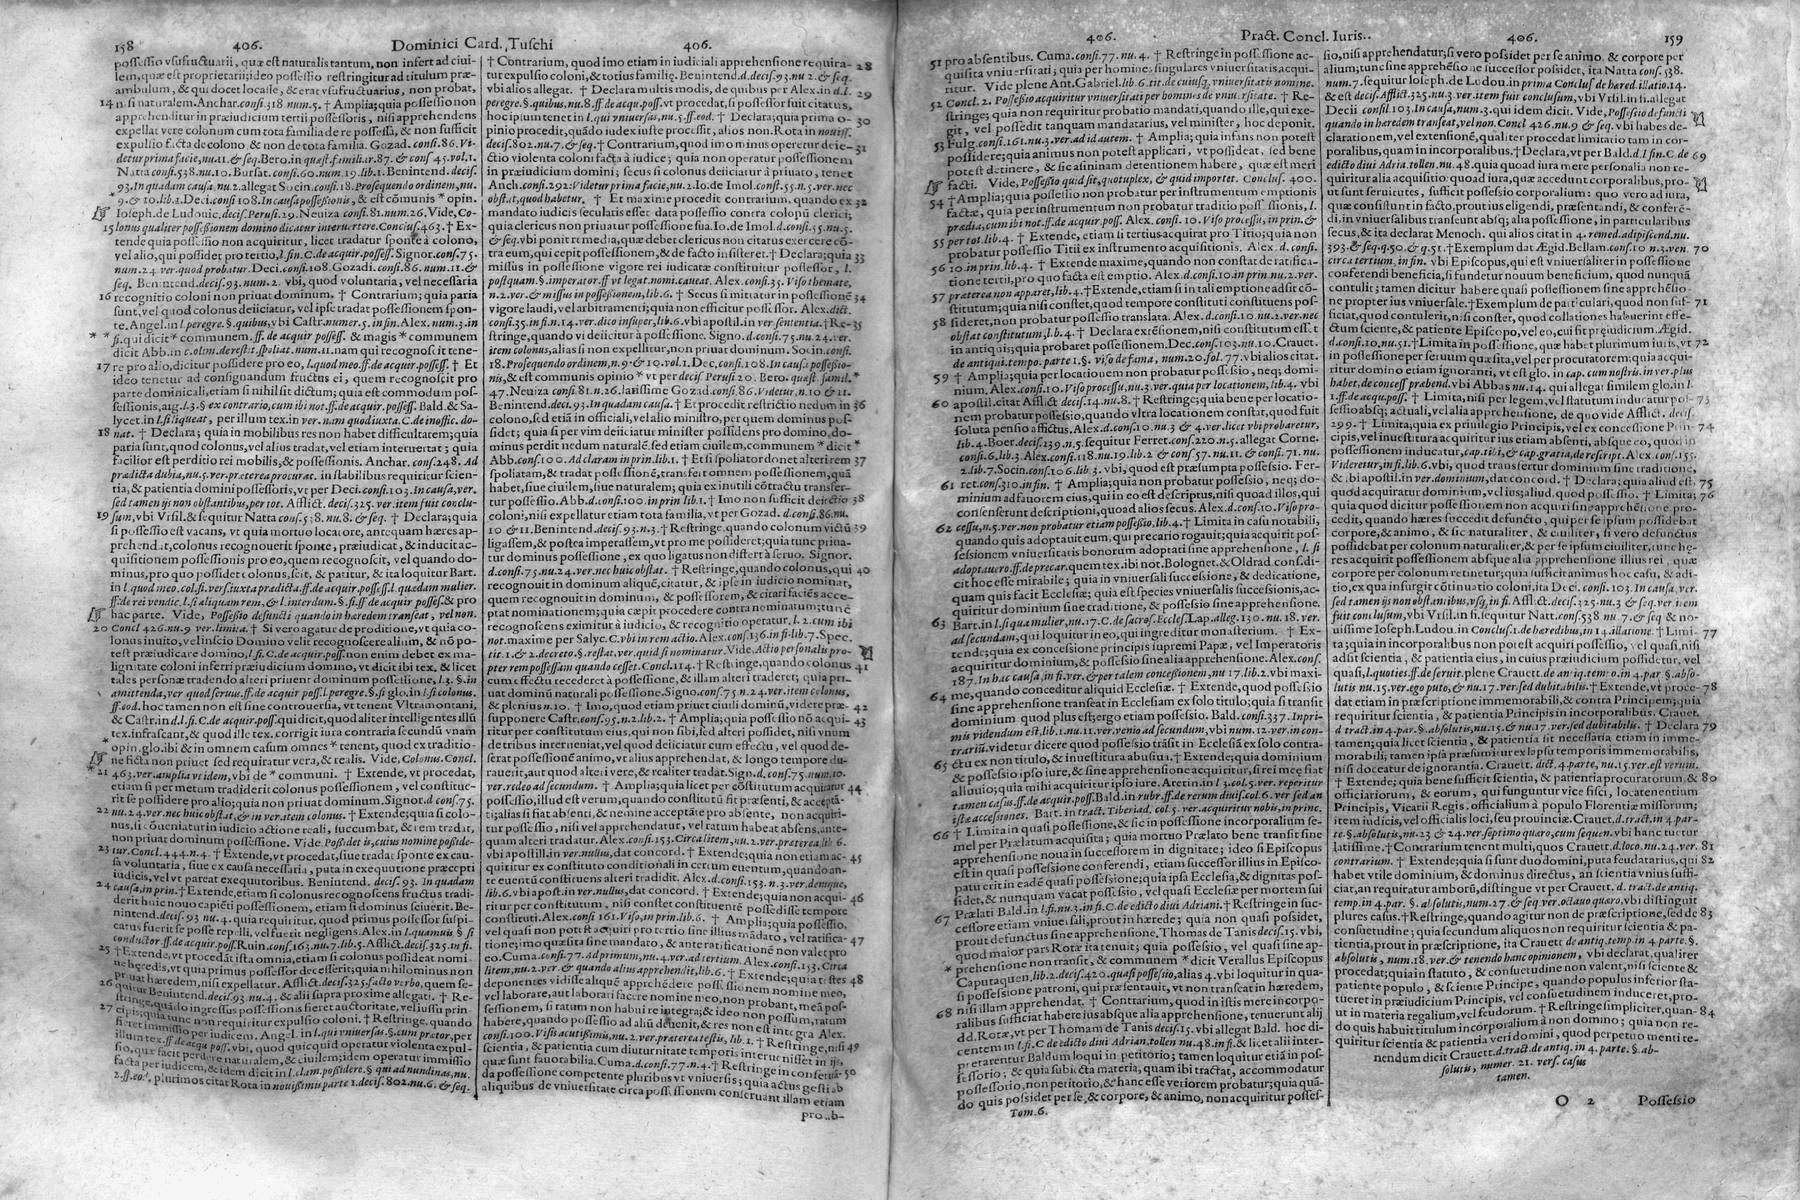 158 406. Dominici Card. Tuschi 406.
possessio vsufructuarii, quæ est naturalis tantum, non infert ad ciui-
lem, quæ est proprietarii; ideo possessio restringitur ad titulum præ-
ambulum, & qui docet locasse, & erat vsufructuarius, non probat,
14 n si naturalem. Anchar. consi. 318 num. 5. † Amplia; quia possessio non
apprehenditur in præiudicium tertii possessoris, nisi apprehendens
expellat vere colonum cum tota familia de re possessa, & non sufficit
expulsio facta de colono, & non de tota familia. Gozad. consi. 86. Vi-
detur prima facie, nu. 21. & seq. Bero. in quæst. familiar. 87. & cons 45. vol. 1.
Natta consi. 538. nu. 10. Bursat. consi. 60. num. 19. lib. 1. Benintend. decis.
93. In quadam causa, nu. 2. allegat Socin. consi. 18. Prosequendo ordinem, nu.
9. & 10. lib. 1. Deci. consi 108. In causa possessionis, & est cōmunis * opin.
Ioseph. de Ludouic. decis. Perusi. 29. Neuiza consi. 81. num. 26. Vide, Co-
15 lonus qualiter possessionem domino dicatur interuertere. Conclus. 463. † Ex-
tende quia possessio non acquiritur, licet tradatur sponte à colono,
vel alio, qui possidet pro tertio, l. fin. C. de acquir. possess. Signor. consi. 75.
num. 24. ver. quod probatur. Deci. consi. 108. Gozadi. consi. 86. num. 11. &
seq. Benintend. decis. 93. num. 2. vbi, quod voluntaria, vel necessaria
16 recognitio coloni non priuat dominum. † Contrarium; quia paria
sunt, vel quod colonus deiiciatur, vel ipse tradat possessionem spon-
te. Angel. in l. peregre. §. quibus, vbi Castr. numer. 5. in fin. Alex. num. 3. in
* * fi. qui dicit * communem. ff. de acquir. possess. & magis * communem
dicit Abb. in c. olim. de restit. spoliat. num. 11. nam qui recognoscit tene-
17 re pro alio, dicitur possidere pro eo, l. quod meo. ff. de acquir. possess. † Et
ideo tenetur ad consignandum fructus ei, quem recognoscit pro
parte dominicali, etiam si nihil sit dictum; quia est commodum pos-
sessionis, aig. l. 3. § ex contrario, cum ibi not. ff. de acquir. possess. Bald. & Sa-
lycet. in l. si liqueat, per illum tex. in ver. nam quod iuxta. C. de inoffic. do-
18 nat. † Declara; quia in mobilibus res non habet difficultatem; quia
paria sunt, quod colonus, vel alius tradat, vel etiam interuertat; quia
facilior est perditio rei mobilis, & possessionis. Anchar. cons. 248. Ad
prædicta dubia, nu. 5. ver. præterea procurat. in stabilibus requiritur scien-
tia, & patientia domini possessoris, vt per Deci. consi. 103. in causa, ver.
sed tamen ijs non obstantibus, per tot. Afflict. decis. 325. ver. item fuit conclu-
19 sum, vbi Vrsil. & sequitur Natta cons. 538. nu. 8. & seq. † Declara; quia
si possessio est vacans, vt quia mortuo locatore, antequam hæres ap-
prehendat, colonus recognouerit sponte, præiudicat, & inducit ac-
quisitionem possessionis pro eo, quem recognoscit, vel quando do-
minus, pro quo possidet colonus, scit, & patitur, & ita loquitur Bart.
in l. quod meo. col. fi. vers. iuxta prædicta. ff. de acquir. possess. l. quadam mulier.
ff. de rei vendic. l. si aliquam rem, & l. interdum. §. fi. ff de acquir posses. & pro
hac parte. Vide, Possessio defuncti quando in hæredem transeat, vel non.
20 Concl 426. nu. 9 ver. limita. † Si vero agatur de proditione, vt quia co-
lonus inuito, vel inscio Domino velit recognoscere alium, & nō po-
test præiudicare domino, l. fi. C. de acquir. poss. non enim debet ex ma-
lignitate coloni inferri præiudicium domino, vt dicit ibi tex. & licet
tales personæ tradendo alteri priuent dominum possessione, l. 3. §. in
amittenda, ver quod seruus. ff. de acquir poss. l. peregre. §. si glo. in l. si colonus.
ff. eod. hoc tamen non est sine controuersia, vt tenent Vltramontani,
& Castr. in d. l. fi. C. de acquir. poss. qui dicit, quod aliter intelligentes illū
tex. infrascant, & quod ille tex. corrigit iura contraria secundū vnam
opin. glo. ibi & in omnem casum omnes * tenent, quod ex traditio-
ne ficta non priuet sed requiratur vera, & realis. Vide, Colonus. Concl.
* 21 463. ver. amplia vt idem, vbi de * communi. † Extende, vt procedat,
etiam si per metum tradiderit colonus possessionem, vel constitue-
rit se possidere pro alio; quia non priuat dominum. Signor. d cons. 75.
22 nu. 24. ver. nec huic obstat, & in ver. item colonus. † Extende; quia si colo-
nus, si cōueniatur in iudicio actione reali, succumbat, & rem tradat,
non priuat dominum possessione. Vide. Possidet is, cuius nomine poside-
23 tur. Concl. 444. n. 4. † Extende, vt procedat, siue tradat sponte ex cau-
sa voluntaria, siue ex causa necessaria, puta in exequutione præcepti
iudicis, vel vt pareat exequutoribus. Benintend. decis. 93. In quadam
24 causa, in prin. † Extende, etiam si colonus recognoscens fructus tradi-
derit huic nouo capiēti possessionem, etiam si dominus sciuerit. Be-
nintend. decis. 93 nu. 4. quia requiritur, quod primus possessor suspi-
catus fuerit se posse repelli, vel fuerit negligens. Alex. in l. quamuis § si
conductor. ff. de acquir. poss. Ruin. cons. 163. nu. 7. lib. 5. Afflict. decis. 325. in fi.
25 † Extende, vt procedāt ista omnia, etiam si colonus possideat nomi-
ne heredis, vt quia primus possessor decesserit; quia nihilominus non
priuat hæredem, nisi expellatur. Afflict. decis. 325. facto verbo, quem se-
26 quitur Benintend. decis. 93. nu. 4. & alii supra proxime allegati. † Re-
stringe, quādo ingressus possessionis fieret auctoritate, vel iussu prin-
27 cipis; quia tunc non requiritur expulsio coloni. † Restringe. quando
fieret immissio per iudicem. Angel. in l. qui vniuersas §. cum prætor, per
illum tex. ff. de acqu poss. vbi, quod quicquid operatur violenta expul-
sio, quæ facit perdere naturalem, & ciuilem; idem operatur immissio
facta per iudicem, & idem dicit in l. clam possidere. § qui ad nundinas, nu.
2. ff. eod. plurimos citat Rota in nouissimis parte 1. decis. 802. nu. 6. & seq.
† Contrarium, quod imo etiam in iudiciali apprehensione requira- 28
tur expulsio coloni, & totius familiæ. Benintend. d. decis. 93. nu 2. & seq.
vbi alios allegat. † Declara multis modis, de quibus per Alex. in d. l. 29
peregre. §. quibus. nu. 8. ff de acqu. poss. vt procedat, si possessor fuit citatus,
hoc ipsum tenet in l. qui vniuersas, nu. 5. ff. eod. † Declara; quia prima o- 30
pinio procedit, quādo iudex iuste processit, alios non. Rota in nouiss.
decis. 802. nu. 7. & seq. † Contrarium, quod imo minus operetur deie- 31
ctio violenta coloni facta à iudice; quia non operatur possessionem
in præiudicium domini; secus si colonus deiiciatur à priuato, tenet
Anch. consi. 292. Videtur prima facie, nu. 2. Io. de Imol. consi. 55. n. 5. ver. nec
obstat, quod habetur. † Et maxime procedit contrarium, quando ex 32
mandato iudicis secularis esset data possessio contra colonū clerici;
quia clericus non priuatur possessione sua. Io. de Imol. d. consi. 55. nu. 5.
& seq. vbi ponit remedia, quæ debet clericus non citatus exercere cō-
tra eum, qui cepit possessionem, & de facto insisteret. † Declara; quia 33
missus in possessione vigore rei iudicatæ constituitur possessor, l.
postquam. §. imperator. ff vt legat. nomi. caueat. Alex. consi. 35. Viso themate,
n. 2. ver. & missus in possessionem, lib. 6. † Secus si mittatur in possessionē 34
vigore laudi, vel arbitramenti; quia non efficitur possessor. Alex. dict.
consi. 35. in fi. n. 14. ver. dico insuper, lib. 6. vbi apostil. in ver sententia. † Re- 35
stringe, quando vi deiicitur à possessione. Signo. d. consi. 75. nu. 24. ver.
item colonus, alias si non expellitur, non priuat dominum. Socin. consi.
18. Prosequendo ordinem, n. 9. & 10. vol. 1. Deci. consi. 108. In causa possessio-
nis, & est communis opinio * vt per decis. Perusi 20. Bero. quæst. famil. *
47. Neuiza consi. 81. n. 26. latissime Gozad. consi. 86. Videtur, n. 10 & 11.
Benintend. deci. 93. In quadam causa. † Et procedit restrictio nedum in 36
colono, sed etiā in officiali, vel alio ministro, per quem dominus pos-
sidet; quia si per vim deiiciatur minister possidens pro domino, do-
minus perdit nedum naturalē. sed etiam ciuilem, communem * dicit *
Abb. cons. 100. Ad claram in prin. lib. 1. † Et si spoliator donet alteri rem 37
spoliatam, & tradat possessionē, transfert omnem possessionem, quā
habet, siue ciuilem, siue naturalem; quia ex inutili cōtractu transfer-
tur possessio. Abb. d. cons. 100. in prin lib. 1. † Imo non sufficit deiectio 38
coloni, nisi expellatur etiam tota familia, vt per Gozad. d. cons. 86. nu.
10 & 11. Benintend. decis. 93. n. 3. † Restringe, quando colonum victū 39
ligassem, & postea imperassem, vt pro me possideret; quia tunc priua-
tur dominus possessione, ex quo ligatus non differt à seruo. Signor.
d. consi. 75. nu. 24. ver. nec huic obstat. † Restringe, quando colonus, qui 40
recognouit in dominum aliquē, citatur, & ipse in iudicio nominat,
quem recognouit in dominum, & possessorem, & citari faciēs acce-
ptat nominationem; quia cœpit procedere contra nominatum; tunc
recognoscens eximitur à iudicio, & recognitio operatur. l. 2. cum ibi
not. maxime per Salyc. C. vbi in rem actio. Alex. cons. 136. in fi. lib. 7. Spec.
tit. 1. & 2. decreto. §. restat. ver. quid si nominatur. Vide. Actio personalis pro-
pter rem possessam quando cesset. Concl. 114. † Restringe, quando colonus 41
cum effectu recederet à possessione, & illam alteri traderet; quia pri-
uat dominū naturali possessione. Signo. cons. 75. n. 24. ver. item colonus,
& plenius n. 10. † Imo, quod etiam priuet ciuili dominū, videre præ- 42
supponere Castr. cons. 95. n. 2. lib. 2. † Amplia; quia possessio nō acqui- 43
ritur per constitutum eius, qui non sibi, sed alteri possidet, nisi vnum
de tribus interueniat, vel quod deiiciatur cum effectu, vel quod de-
serat possessionē animo, vt alius apprehendat, & longo tempore du-
rauerit, aut quod alteri vere, & realiter tradat. Sign. d. cons. 75. num. 10.
ver. redeo ad secundum. † Amplia; quia licet per cōstitutum acquiratur 44
possessio, illud est verum, quando constitutū fit præsenti, & acceptā-
ti; alias si fiat absenti, & nemine acceptāte pro absente, non acquiri-
tur possessio, nisi vel apprehendatur, vel ratum habeat absens, ante-
quam alteri tradatur. Alex. consi. 153. Circa litem, nu. 2. ver. præterea. lib 6.
vbi apostill. in ver. nullus, dat concord. † Extende; quia non etiam ac- 45
quiritur ex constituto conditionali in certum euentum, quando an-
te euentū constituens alteri tradidit. Alex. d. consi. 153. n. 3. ver. denique,
lib. 6. vbi apost. in ver. nullus, dat concord. † Extende; quia non acqui- 46
ritur per constitutum, nisi constet constituentē possedisse tempore
constituti. Alex. consi 161. Viso, in prin. lib. 6. † Amplia; quia possessio,
vel quasi non potest acquiri pro tertio sine illius mādato, vel ratifica- 47
tione; imo quæsita sine mandato, & ante ratificationē non valet pro
eo. Cuma. cons. 77. Ad primum, nu. 4. ver. ad tertium. Alex. consi. 153. Circa
litem, nu. 2. ver. & quando alius apprehendit, lib. 6. † Extende; quia testes 48
deponentes vidisse aliquē apprehēdere possessionem nomine meo,
vel laborare, aut laborari facere nomine meo, non probant, meā pos-
sessionem, si ratum non habui re integra; & ideo non possum, ratum
habere, quando iam possessio ad aliū deuenit, & res non est integra Alex.
cons. 100. Visis acutissimis, nu. 2. ver. præterea testis, lib. 1. † Restringe, nisi 49
scientia, & patientia cum diuturnitate temporis interuenisset in ijs,
quæ sunt fauorabilia. Cuma. d. consi. 77. n. 4. † Restringe in conseruā- 50
da possessione competente pluribus vt vniuersis; quia actus gesti ab
aliquibus de vniuersitate circa possessionem conseruant illam etiam
pro ab-
406. Pract. Concl. Iuris. 406. 159
51 pro absentibus. Cuma. consi. 77. nu. 4. † Restringe in possessione ac-
quisita vniuersitati; quia per homines singulares vniuersitatis acqui-
ritur. Vide plene Ant. Gabriel. lib. 6. tit. de cuiusq. vniuersitatis nomine.
52 Concl. 2. Possessio acquiritur vniuersitati per homines de vniuersitate. † Re-
stringe; quia non requiritur probatio mandati, quando ille, qui exe-
git, vel possedit tanquam mandatarius, vel minister, hoc deponit.
53 Fulg. consi. 161. nu. 3. ver. ad id autem. † Amplia; quia infans non potest
possidere; quia animus non potest applicari, vt possideat, sed bene
potest detinere, & sic asininam detentionem habere, quæ est meri
facti. Vide, Possessio quid sit, quotuplex, & quid importet. Conclus. 400.
54 † Amplia; quia possessio non probatur per instrumentum emptionis
factæ, quia per instrumentum non probatur traditio possessionis, l.
prædia, cum ibi not. ff. de acquir. poss. Alex. consi. 10. Viso processu, in prin. &
55 per tot. lib. 4. † Extende, etiam si tertius acquirat pro Titio; quia non
probatur possessio Titii ex instrumento acquisitionis. Alex d. consi.
56 10. in prin. lib. 4. † Extende maxime, quando non constat de ratifica-
tione tertii, pro quo facta est emptio. Alex. d. consi. 10. in prin nu. 2. ver.
57 præterea non apparet, lib. 4. † Extende, etiam si in tali emptione adsit cō-
stitutum; quia nisi constet, quod tempore constituti constituens pos-
58 sideret, non probatur possessio translata. Alex. d. consi. 10. nu. 2. ver. nec
obstat constitutum, l. b. 4. † Declara extēsionem, nisi constitutum esset
in antiquis; quia probaret possessionem. Dec. cons. 103. no. 10. Crauet.
de antiqui. tempo. parte 1. §. viso de fama, num. 20. fol. 77. vbi alios citat.
59 † Amplia; quia per locationem non probatur possessio, neq; domi-
nium, Alex. consi. 10. Viso processu, nu. 3. ver. quia per locationem, lib. 4. vbi
60 apostil. citat Afflict decis. 14. nu. 8. † Restringe; quia bene per locatio-
nem probatur possessio, quando vltra locationem constat, quod fuit
soluta pensio affictus. Alex. d. cons. 10. nu. 3 & 4. ver. licet vbi probaretur,
lib. 4. Boer. decis. 139. n. 5. sequitur Ferret. cons. 220. n. 5. allegat Corne.
cons. 6. lib. 3. Alex. cons. 118. nu. 19. lib. 2. & cons. 57. nu. 11. & cons. 71. nu.
2. lib. 7. Socin. cons. 106. lib. 3. vbi, quod est præsumpta possessio. Fer-
61 ret. cons. 310. in fin. † Amplia; quia non probatur possessio, neq; do-
minium ad fauorem eius, qui in eo est descriptus, nisi quoad illos, qui
consenserunt descriptioni, quoad alios secus. Alex. d. cons. 10. Viso pro-
62 cessu, n. 5. ver. non probatur etiam possessio, lib. 4. † Limita in casu notabili,
quando quis adoptauit eum, qui precario rogauit; quia acquirit pos-
sessionem vniuersitatis bonorum adoptati sine apprehensione, l. si
adoptauero. ff. de precar. quem tex. ibi not. Bolognet. & Oldrad. cons. di-
cit hoc esse mirabile; quia in vniuersali successione, & dedicatione,
quam quis facit Ecclesiæ; quia est species vniuersalis successionis, ac-
quiritur dominium sine traditione, & possessio sine apprehensione.
63 Bart. in l. si qua mulier, nu. 17. C. de sacros. Eccles. Lap. alleg. 130. nu. 18. ver.
ad secundum, qui loquitur in eo, qui ingreditur monasterium. † Ex-
tende; quia ex concessione principis supremi Papæ, vel Imperatoris
acquiritur dominium, & possessio sine alia apprehensione. Alex. cons.
187. In hac causa, in fi. ver. & per talem concessionem, nu 17. lib. 2. vbi maxi-
64 me, quando conceditur aliquid Ecclesiæ. † Extende, quod possessio
sine apprehensione transeat in Ecclesiam ex solo titulo; quia si transit
dominium quod plus est; ergo etiam possessio. Bald. cons. 337. Inpri-
mis videndum est, lib. 1. nu. 11. ver. venio ad secundum, vbi num. 12. ver. in con-
trarium. videtur dicere quod possessio trāsit in Ecclesiā ex solo contra-
65 ctu ex non titulo, & inuestitura abusiua. † Extende; quia dominium
& possessio ipso iure, & sine apprehensione acquiritur, si rei meę fiat
alluuio; quia mihi acquiritur ipso iure. Aretin. in l 3. col. 5. ver. reperitur
tamen casus. ff. de acquir. poss. Bald. in rubr. ff. de rerum diuis. col. 6. ver. sed an
iste accessiones. Bart. in tract. Tiberiad. col. 5. ver. acquiritur nobis, in princ.
66 † Limita in quasi possessione, & sic in possessione incorporalium se-
mel per Prælatum acquisita; quia mortuo Prælato bene transit sine
apprehensione noua in successorem in dignitate; ideo si Episcopus
est in quasi possessione conferendi, etiam successor illius in Episco-
patu erit in eadē quasi possessione; quia ipsa Ecclesia, & dignitas pos-
sidet, & nunquam vacat possessio, vel quasi Ecclesiæ per mortem sui
Prælati Bald. in l. fi. nu. 3. in fi. C. de edicto diui Adriani. † Restringe in suc-
67 cessore etiam vniuersali, prout in hærede; quia non quasi possidet,
prout defunctus sine apprehensione. Thomas de Tanis decis. 15. vbi,
quod maior pars Rotæ ita tenuit; quia possessio, vel quasi sine ap-
* prehensione non transit, & communem * dicit Verallus Episcopus
Caputaquen. lib. 2. decis. 420. quasi possessio, alias 4. vbi loquitur in qua-
si possessione patroni, qui præsentauit, vt non transeat in hæredem,
68 nisi illam apprehendat. † Contrarium, quod in istis mere incorpo-
ralibus sufficiat habere ius absque alia apprehensione, tenuerunt alij
dd. Rotæ, vt per Thomam de Tanis decis. 15. vbi allegat Bald. hoc di-
centem in l. fi C. de edicto diui Adrian. tollen nu. 48. in fi. & licet alii inter-
pretarentur Baldum loqui in petitorio; tamen loquitur etiā in pos-
sessorio; & quia subiecta materia, quam ibi tractat, accommodatur
possessorio, non petitorio, & hanc esse veriorem probatur; quia quā-
do quis possidet per se, & corpore, & animo, non acquiritur posses-
Tom. 6.
sio, nisi apprehendatur; si vero possidet per se animo, & corpore per
alium; tunc sine apprehēsione successor possidet, ita Natta cons. 538.
num. 7. sequitur Ioseph. de Ludou. in prima Conclus de hared. illatio. 14.
& est decis. Afflict. 325. nu. 3. ver. item fuit conclusum, vbi Vrsil. in fi. allegat
Deci consil 103. In causa, num. 3. qui idem dicit. Vide, Possessio defuncti
quando in hæredem transeat, vel non. Concl 426. nu. 9 & seq. vbi habes de-
clarationem, vel extensionē, qualiter procedat limitatio tam in cor-
poralibus, quam in incorporalibus. † Declara, vt per Bald. d. l. fin. C de 69
edicto diui Adria. tollen. nu. 48. quia quoad iura mere personalia non re-
quiritur alia acquisitio: quoad iura, quæ accedunt corporalibus, pro-
ut sunt seruitutes, sufficit possessio corporalium: quo vero ad iura,
quæ consistunt in facto, prout ius eligendi, præsentandi, & conferē-
di, in vniuersalibus transeunt absq; alia possessione, in particularibus
secus, & ita declarat Menoch. qui alios citat in 4. remed. adipiscend. nu.
393. & seq. q. 50. & q. 51. † Exemplum dat Ægid. Bellam. cons. 10 n. 3. ven. 70
circa tertium, in fin. vbi Episcopus, qui est vniuersaliter in possessione
conferendi beneficia, si fundetur nouum beneficium, quod nunquā
contulit; tamen dicitur habere quasi possessionem sine apprehēsio-
ne propter ius vniuersale. † Exemplum particulari, quod non suf- 71
ficiat, quod contulerit, nisi constet, quod collationes habuerint effe-
ctum sciente, & patiente Episcopo, vel eo, cui fit præiudicium. Ægid.
d. cons. 10. nu. 51. † Limita in possessione, quæ habet plurimum iuris, vt 72
in possessione per seruum quæsita, vel per procuratorem; quia acqui-
ritur domino etiam ignoranti, vt est glo. in cap. cum nostris. in ver. plus
habet. de concess præbend. vbi Abbas nu. 14. qui allegat similem glo. in l.
1. ff. de acqu. poss. † Limita, nisi per legem, vel statutum inducatur pos- 73
sessio absq; actuali, vel alia apprehensione, de quo vide Afflict. decis.
299. † Limita; quia ex priuilegio Principis, vel ex concessione Prin- 74
cipis, vel inuestitura acquiritur ius etiam absenti, absque eo, quod in
possessionem inducatur, cap. tibi, & cap. gratia, de rescript. Alex. cons. 155.
Videretur, in fi. lib. 6. vbi, quod transfertur dominium sine traditione,
& ibi apostil. in ver. dominium, dat concord. † Declara; quia aliud est, 75
quod acquiratur dominium, vel ius; aliud, quod possessio. † Limita; 76
quia quod dicitur possessionem non acquiri sine apprehēsione, pro-
cedit, quando hæres succedit defuncto, qui per se ipsum possidebat
corpore, & animo, & sic naturaliter, & ciuiliter, si vero defunctus
possidebat per colonum naturaliter, & per se ipsum ciuiliter, tunc hę-
res acquirit possessionem absque alia apprehensione illius rei, quæ
corpore per colonum retinetur; quia sufficit animus hoc casu, & adi-
tio, ex qua insurgit cōtinuatio coloni, ita Deci. consi. 103. In causa, ver.
sed tamen ijs non obstantibus, vsq; in fi. Afflict. decis. 325. nu. 3 & seq. ver. item
fuit conclusum, vbi Vrsil. in fi. sequitur Natt. cons. 538 nu. 7. & seq & no-
uissime Ioseph. Ludou. in Conclus. 1. de heredibus, in 14. illatione. † Limi- 77
ta; quia res incorporalis non potest acquiri possessio, vel quasi, nisi
adsit scientia, & patientia eius, in cuius præiudicium possidetur, vel
quasi, l. quoties. ff. de seruit. plene Crauett. de antiq. tem: o. in 4. par. §. abso-
lutis nu. 15. ver. ego puto, & nu. 17. ver. sed dubitabis. † Extende, vt proce- 78
dat etiam in præscriptione immemorabili, & contra Principem; quia
requiritur scientia, & patientia Principis in incorporalibus. Crauet.
d tract. in 4. par. §. absolutis, nu. 15. & nu. 17. ver. sed dubitabis. † Declara 79
tamen; quia licet scientia, & patientia sit necessaria etiam in imme-
morabili, tamen ipsa præsumitur ex lapsu temporis immemorabilis,
nisi doceatur de ignorantia. Crauett. dict. 4. parte, nu. 15. ver. est verum.
† Extende; quia bene sufficit scientia, & patientia procuratorum, & 80
officiariorum, & eorum, qui funguntur vice fisci, locatenentium
Principis, Vicarii Regis, officialium à populo Florentiæ missorum;
item iudicis, vel officialis loci, seu prouinciæ. Crauet. d. tract. in 4 par-
te. §. absolutis, nu. 23 & 24. ver. septimo quæro, cum sequen. vbi hanc tuetur
latissime. † Contrarium tenent multi, quos Crauett. d. loco. nu. 24. ver. 81
contrarium. † Extende; quia si sunt duo domini, puta feudatarius, qui 82
habet vtile dominium, & dominus directus, an scientia vnius suffi-
ciat, an requiratur amborū, distingue vt per Crauett. d. tract. de antiq.
temp. in 4. par. §. absolutis, num. 27. & seq ver. octauo quæro, vbi distinguit
plures casus. † Restringe, quando agitur non de præscriptione, sed de 83
consuetudine; quia secundum aliquos non requiritur scientia & pa-
tientia, prout in præscriptione, ita Crauett de antiq. temp. in 4 parte. §.
absolutis, num. 18. ver. & tenendo hanc opinionem, vbi declarat, qualiter
procedat; quia in statuto, & consuetudine non valent, nisi sciente &
patiente populo, & sciente Principe, quando populus inferior sta-
tueret in præiudicium Principis, vel consuetudinem induceret, pro-
ut in materia regalium, vel feudorum. † Restringe similiter, quan- 84
do quis habuit titulum incorporalium à non domino; quia non re-
quiritur scientia & patientia veri domini, quod perpetuo menti te-
nendum dicit Crauett. d. tract. de antiq. in 4. parte. §. ab-
solutis, numer. 21. vers. casus
tamen.
O 2 Possessio